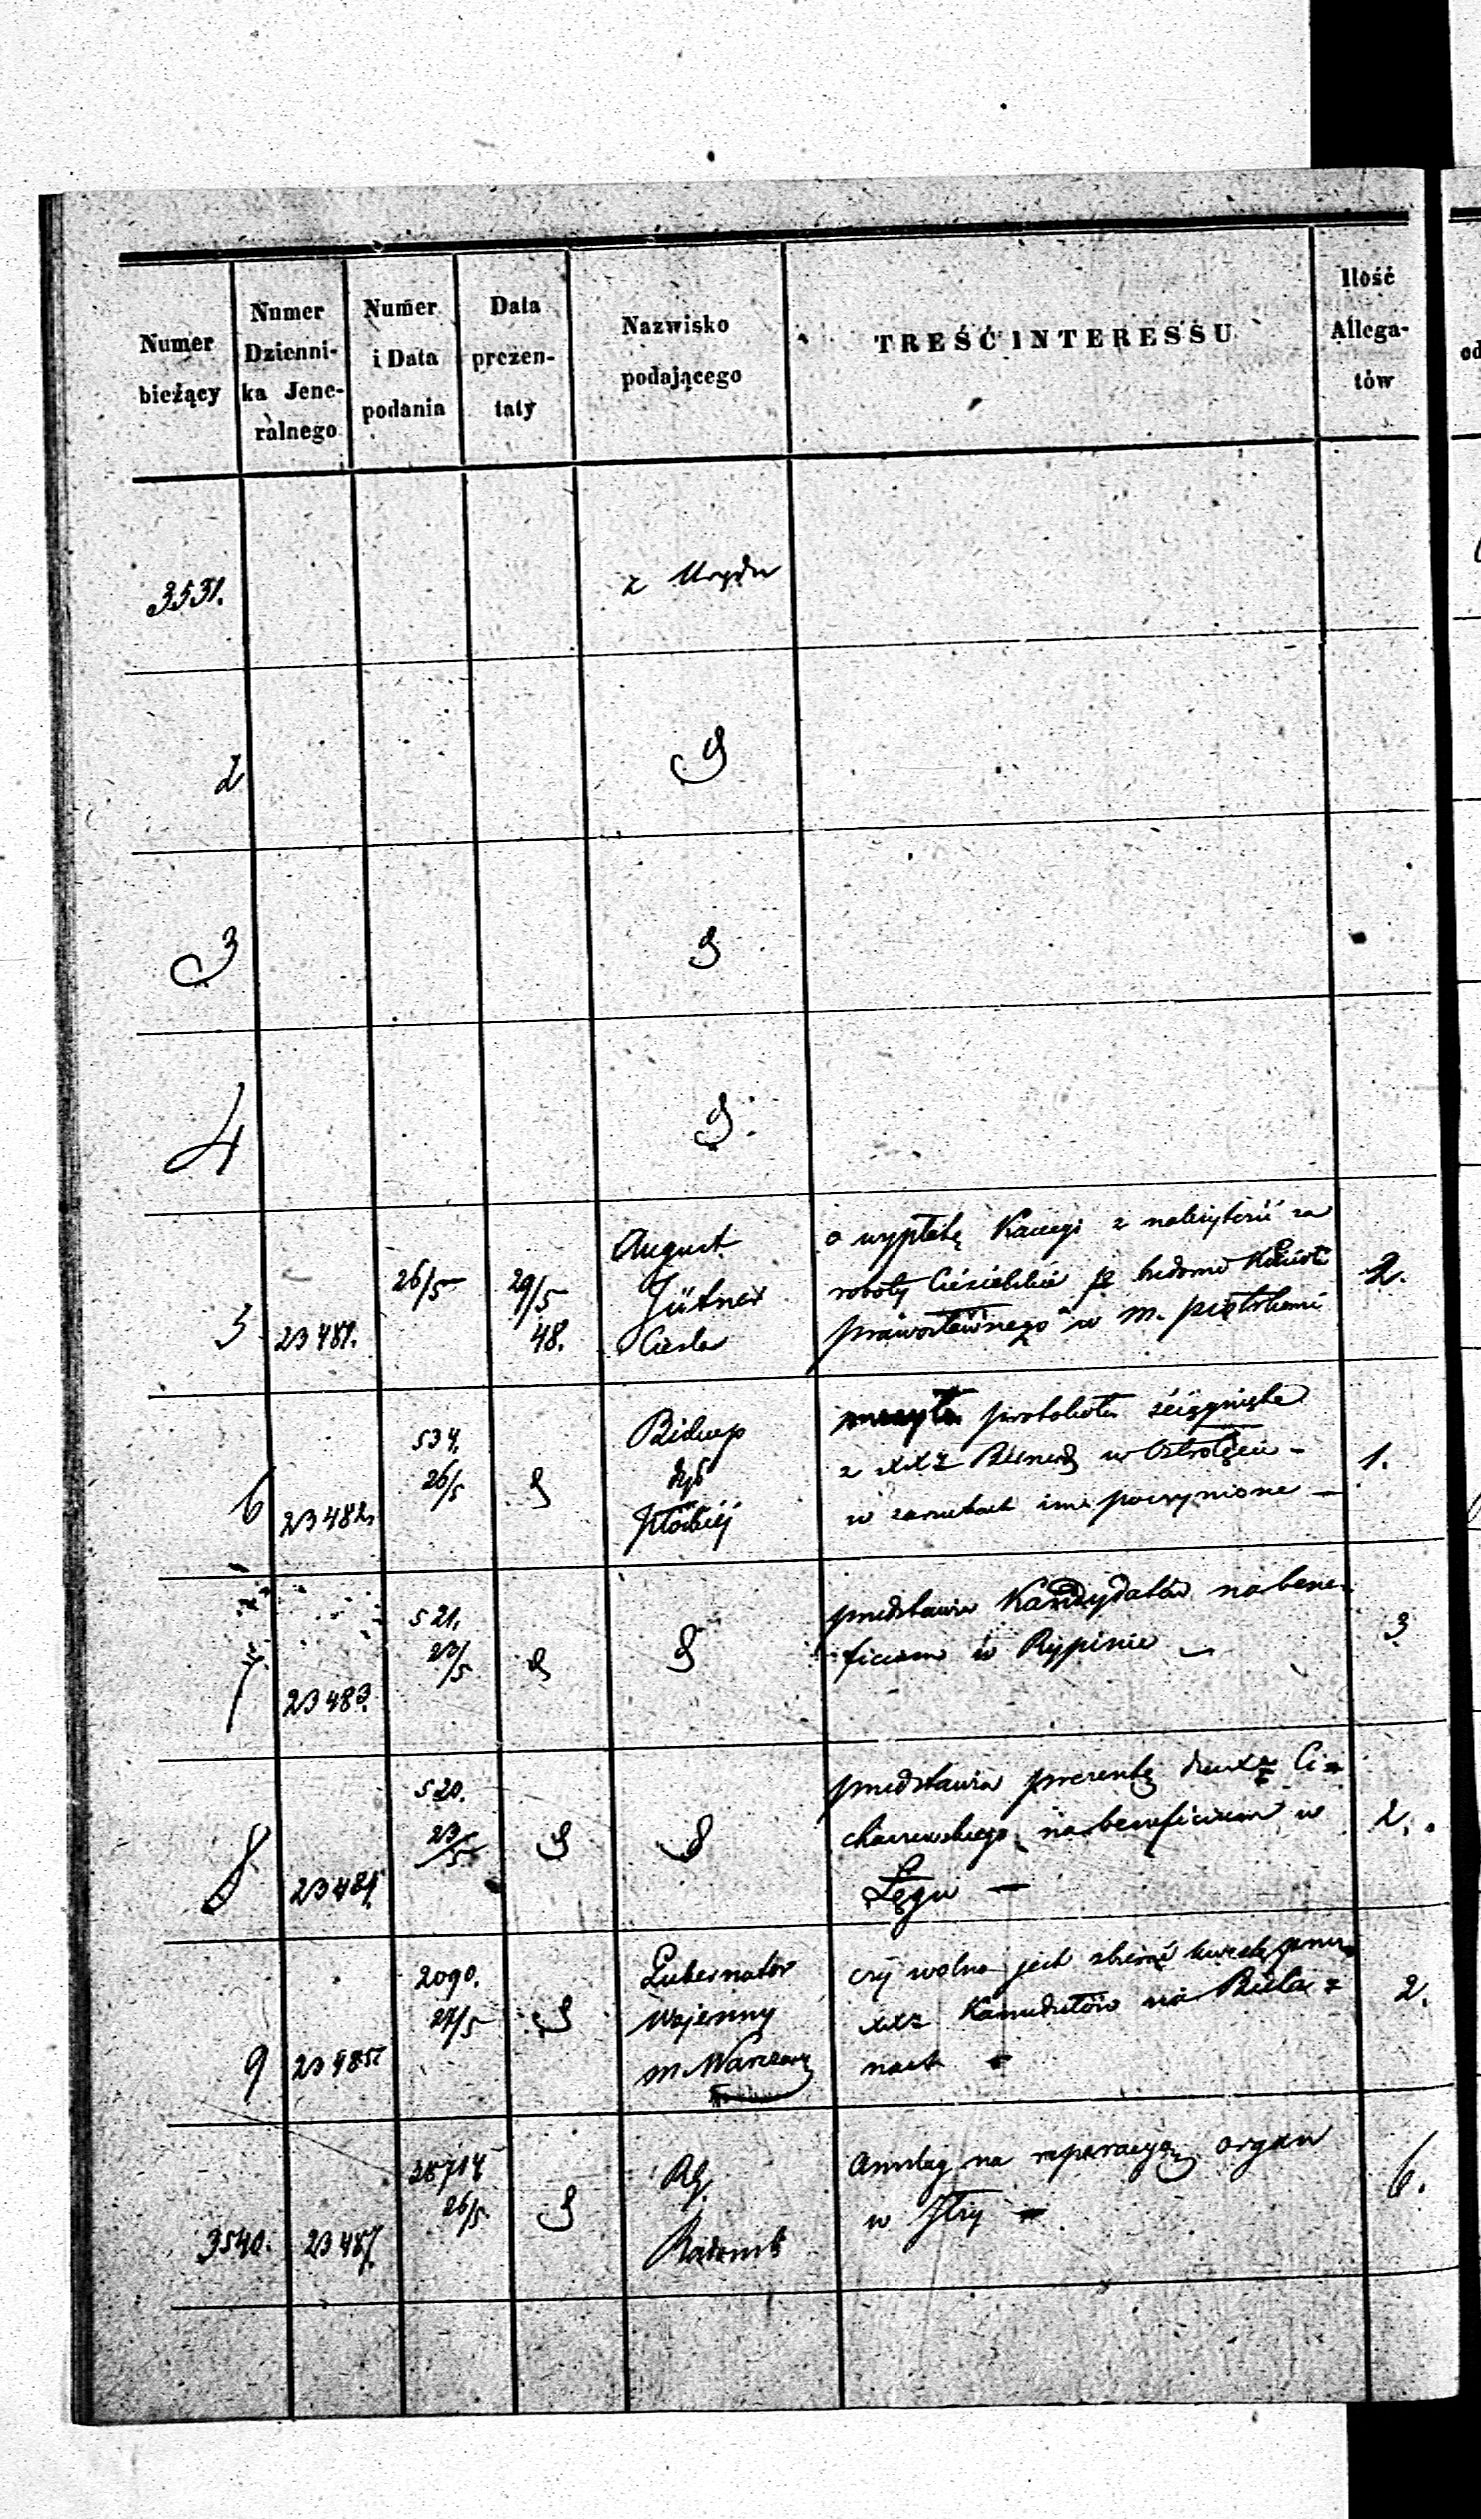 Numer bieżący
Numer Dziennika Jeneralnego
Numer i Data podania
Data prezentaty
Nazwisko podającego
TREŚĆ INTERESSU
Ilość Allegatów
3531. z Urzędu
2
3
4
5 23481. 26/5 29/5 48. August Jütner Cieśla
o wypłatę Kaucyi z należytości za
roboty Ciesielskie
prawosławnego w m.
2.
6 23482. 534. 26/5 Biskup Płockiéj
protokółu
z XXZ w
w zarzutach im poczynione —
1.
7 23483. 521. 23/5
przedstawia Kandydatów na bene-
ficium w Rypinie —
3
8 23484. 520. 23/5
przedstawia prezentę dla Ci-
chaczewskiego na beneficium w
Łęgu —
2.
9 23485 2090. 27/5 Gubernator Wojenny m. Warszawy
czy wolno jest zbierać kwestę przez
XXZ Kamedułów na Biela-
nach
2.
3540. 23487. 28714 26/5 RG. Radoms
Anszlag na reperacyą organ
w Iłży —
6.